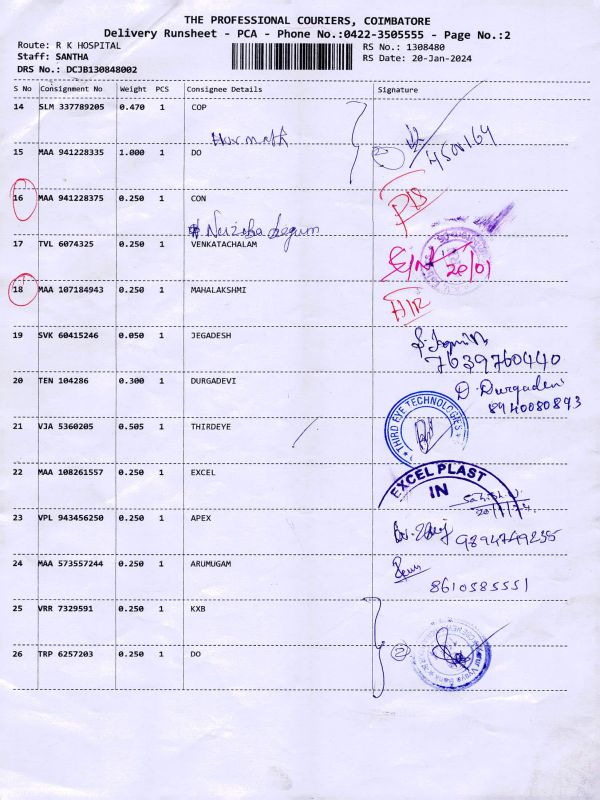 THE PROFESSIONAL COURIERS, COIMBATORE
Delivery Runsheet - PCA - Phone No.:0422-3505555 - Page No.:2
Route: R K HOSPITAL
Staff: SANTHA
DRS No.: DCJB130848002
RS No.: 1308480
RS Date: 20-Jan-2024
S No Consignment No Weight PCS Consignee Details Signature
14 SLM 337789205 0.470 1 COP
15 MAA 941228335 1.000 1 DO 2
16 MAA 941228375 0.250 1 CON
17 TVL 6074325 0.250 1 VENKATACHALAM 20/01
18 MAA 107184943 0.250 1 MAHALAKSHMI
19 SVK 60415246 0.050 1 JEGADESH
7639760440
20 TEN 104286 0.300 1 DURGADEVI D. Durgadevi
8940080893
21 VJA 5360205 0.505 1 THIRDEYE THIRD EYE TECHNOLOGIES
22 MAA 108261557 0.250 1 EXCEL EXCEL PLAST
IN
23 VPL 943456250 0.250 1 APEX 9894749235
24 MAA 573557244 0.250 1 ARUMUGAM
8610585551
25 VRR 7329591 0.250 1 KXB
26 TRP 6257203 0.250 1 DO 2